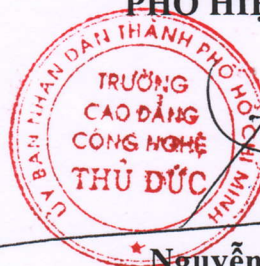 PHÓ HIỆ
ỦY BAN NHÂN DÂN THÀNH PHỐ HỒ CHÍ MINH
TRƯỜNG
CAO ĐẲNG
CÔNG NGHỆ
THỦ ĐỨC
Nguyễn